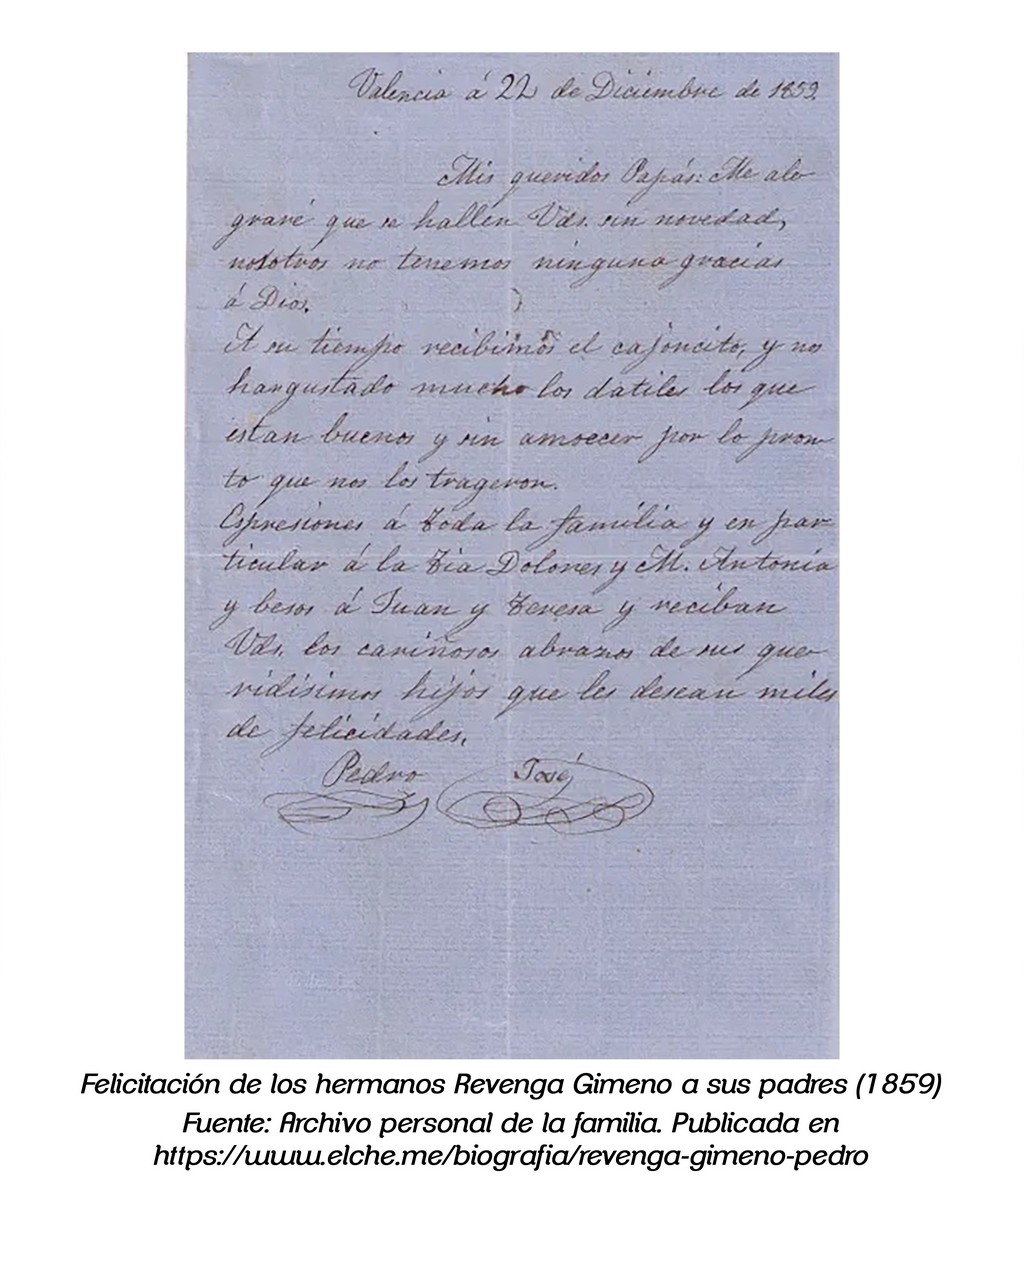 Valencia á 22 de Diciembre de 1859.
Mis queridos Papás: Me ale
graré que se hallen Vds. sin novedad,
nosotros no tenemos ninguna gracias
á Dios.
A su tiempo recibimos el cajoncito, y nos
han gustado mucho los datiles los que
estan buenos y sin amocecer por lo pron
to que nos los trageron.
Espresiones á toda la familia y en par
ticular á la tia Dolores y M. Antonia
y besos á Juan y Teresa y reciban
Vds. los cariñosos abrazos de sus que
ridisimos hijos que les desean miles
de felicidades.
Pedro José
Felicitación de los hermanos Revenga Gimeno a sus padres (1859)
Fuente: Archivo personal de la familia. Publicada en
https://www.elche.me/biografia/revenga-gimeno-pedro